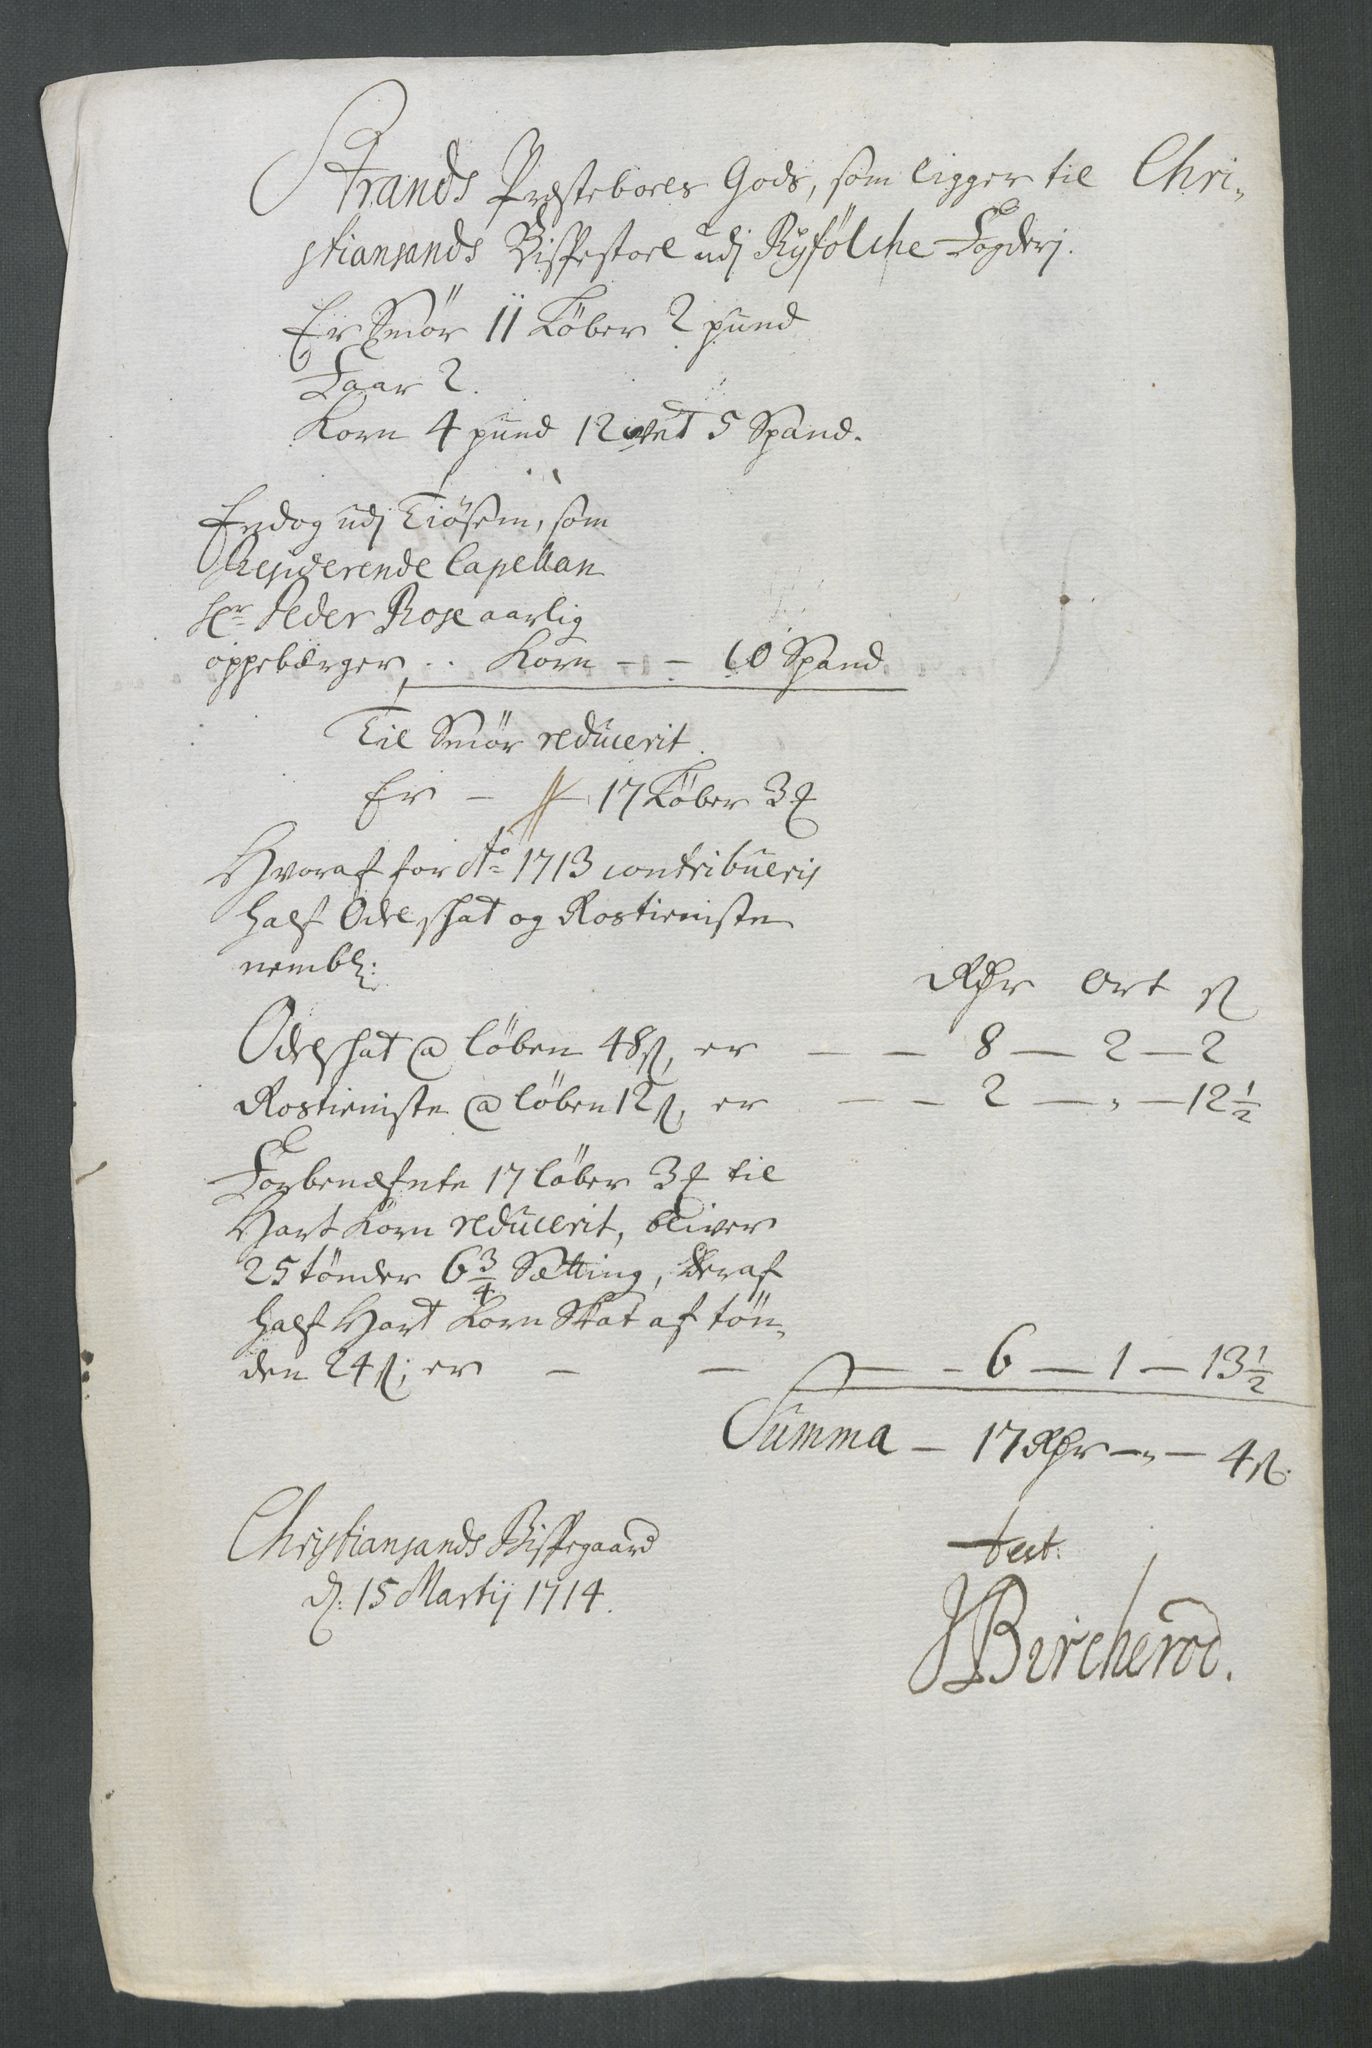 Strands Præstebools Gods, som ligger til Chri-
stiansands Bispestoel udj Ryfølche Fogderj.
Er Smör 11 Løber 2 pund
Faar 2.
Korn 4 pund 12 vet 5 Spand.
Endog udj Tiøsem, som
Residerende Capellan
Hr Peder Rose aarlig
oppebærger, .. Korn - - 10 Spand
Til Smör reducerit.
Er - 17 Løber 3 ₰
Hvoraf for Ao 1713 contribueris
half Odelskat og Rostieniste
nembl:
Rdr Ort ß
Odelskat @ løben 48 ß, er - - 8 - 2 - 2
Rostieniste @ løben 12 ß, er - - 2 - " - 12 1/2
Forbenæfnte 17 løber 3 ₰ til
Hart Korn reducerit, bliver
25 tönder 6 3/4 Sætting, deraf
half Hart Korn Skat af tön-
den 24 ß; er - - - - 6 - 1 - 13 1/2
Summa - 17 Rdr - " - 4 ß.
Christiansands Bispegaard
d: 15 Martij 1714.
test:
JBircherod.